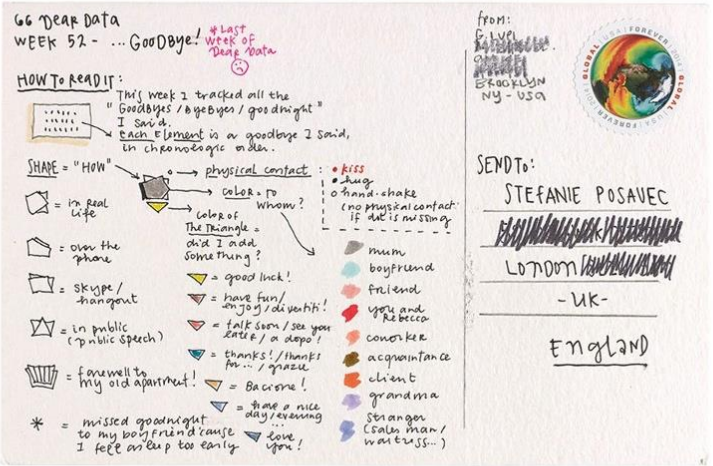 GG DEAR DATA
WEEK 52 - ... GOODBYE!
* LAST
WEEK OF
DEAR DATA
HOW TO READ IT:
This week I tracked all the
"GOODBYES / BYEBYES / goodnight"
I said.
Each Element is a goodbye I said,
in chronologic order.
SHAPE = "HOW"
= in real
life
= over the
phone
= skype/
hangout
= in public
(public speech)
= farewell to
my old apartment!
* = missed goodnight
to my boyfriend 'cause
I fell asleep too early
physical contact:
• kiss
• hug
o hand-shake
(no physical contact
if dot is missing
COLOR = TO
WHOM?
COLOR OF
The TRIANGLE =
did I add
something?
= good luck!
= have fun/
enjoy / divertiti!
= talk soon / see you
later / a dopo!
= thanks! / thanks
for... / grazie
= Bacione!
= have a nice
day / evening
...
= love
you!
mum
boyfriend
friend
you and
Rebecca
coworker
acquaintance
client
grandma
stranger
(sales man/
waitress...)
FROM:
G. LUPI
BROOKLYN
NY - USA
GLOBAL | USA | FOREVER
GLOBAL | USA | FOREVER
SEND TO:
STEFANIE POSAVEC
LONDON
- UK -
ENGLAND